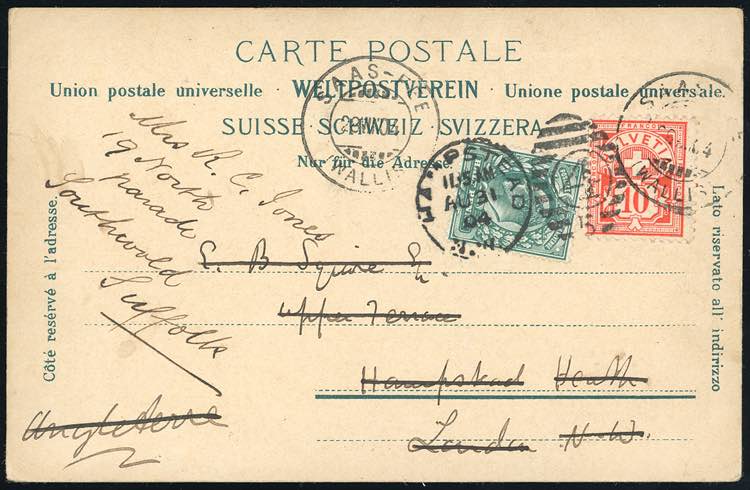 CARTE POSTALE
Union postale universelle · WELTPOSTVEREIN · Unione postale universale.
SUISSE SCHWEIZ SVIZZERA
Nur für die Adresse
Côté reservé à l'adresse.
Lato riservato all' indirizzo
SAAS-FEE
WALLIS
HAMPSTEAD
AU 31
04
N.W.
FRANCO
HELVETIA
10
WALLIS
Mrs R. C. Jones
19 North
Parade
Southwold
Suffolk
E. B. Squire Esq
Upper Terrace
Hampstead Heath
London N.W.
Angleterre